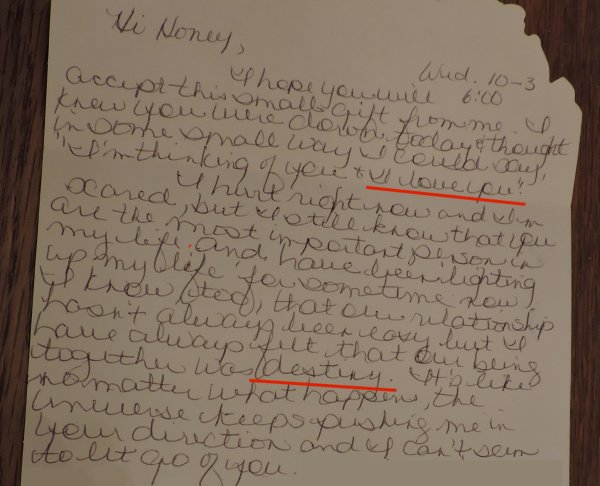 Hi Honey,
Wed. 10-3
6:00
I hope you will
accept this small gift from me. I
knew you were down today & thought
in some small way I could say,
"I'm thinking of you & I love you".
I hurt right now and I'm
scared, but I still know that you
are the most important person in
my life and have been lighting
up my life for sometime now.
I know (Ated), that our relationship
hasn't always been easy but I
have always felt that our being
together was destiny. It's like
no matter what happens, the
universe keeps pushing me in
your direction and I can't seem
to let go of you.